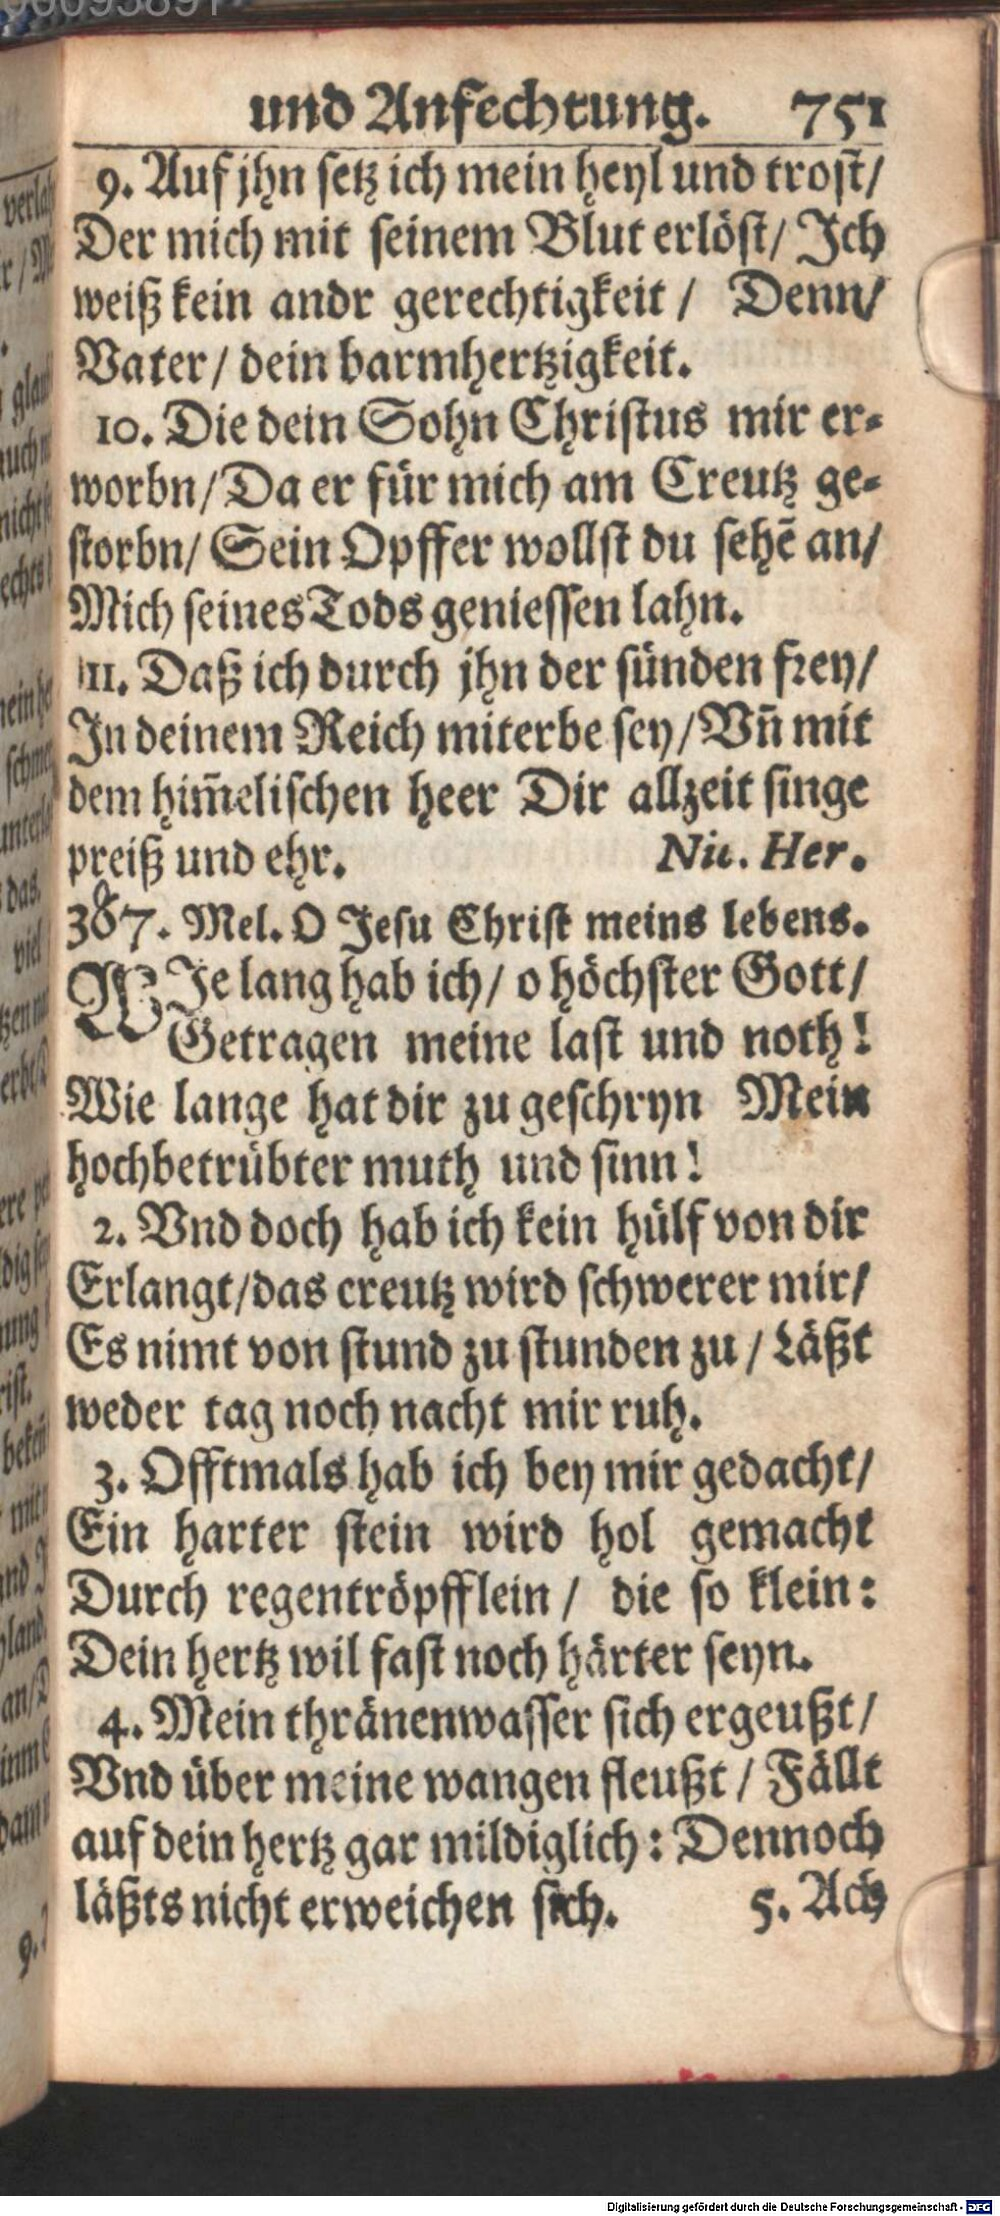 und Anfechtung. 751
9. Auf jhn setz ich mein heyl und trost/
Der mich mit seinem Blut erlöst/ Ich
weiß kein andr gerechtigkeit / Denn/
Vater / dein barmhertzigkeit.
10. Die dein Sohn Christus mir er-
worbn/ Da er für mich am Creutz ge-
storbn/ Sein Opffer wollst du sehē an/
Mich seines Tods geniessen lahn.
11. Daß ich durch jhn der sünden frey/
In deinem Reich miterbe sey / Vñ mit
dem him̄elischen heer Dir allzeit singe
preiß und ehr. Nic. Her.
387. Mel. O Jesu Christ meins lebens.
WIe lang hab ich/ o höchster Gott/
Getragen meine last und noth!
Wie lange hat dir zu geschryn Mein
hochbetrübter muth und sinn!
2. Vnd doch hab ich kein hülf von dir
Erlangt/das creutz wird schwerer mir/
Es nimt von stund zu stunden zu / Läßt
weder tag noch nacht mir ruh.
3. Offtmals hab ich bey mir gedacht/
Ein harter stein wird hol gemacht
Durch regentröpfflein / die so klein:
Dein hertz wil fast noch härter seyn.
4. Mein thränenwasser sich ergeußt/
Vnd über meine wangen fleußt / Fällt
auf dein hertz gar mildiglich: Dennoch
läßts nicht erweichen sich. 5. Ach
Digitalisierung gefördert durch die Deutsche Forschungsgemeinschaft - DFG